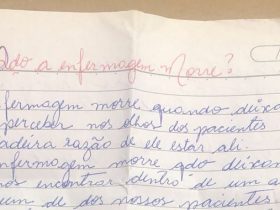 Qdo a enfermagem Morre?
fermagem morre quando deixa
perceber nos olhos dos pacientes
adeira razão de ele estar ali.
nfermagem morre qdo deixam
nos encontrar dentro de um a
um de dos nossos pacientes.